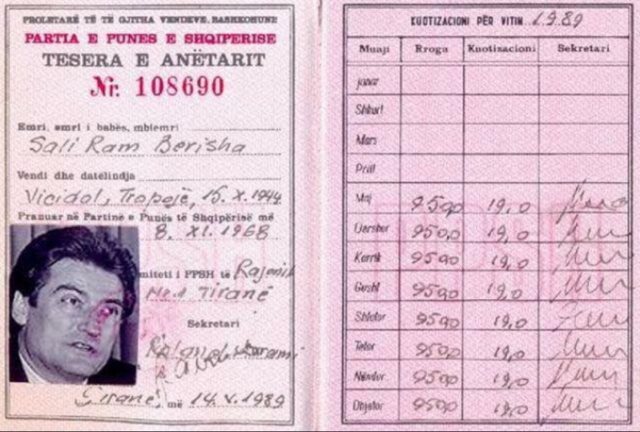 PROLETARË TË TË GJITHA VENDEVE, BASHKOHUNI!
PARTIA E PUNES E SHQIPERISE
TESERA E ANËTARIT
Nr. 108690
Emri, emri i babës, mbiemri
Sali Ram Berisha
Vendi dhe datëlindja
Vicidol, Tropojë, 15.X.1944
Pranuar në Partinë e Punës të Shqipërisë më
8. XI. 1968
miteti i PPSH të Rajonit
Tiranë
Sekretari
Tiranë, më 14.V.1989
KUOTIZACIONI PËR VITIN 1989
Muaji Rroga Kuotizacioni Sekretari
janar
Shkurt
Mars
Prill
Maj 950,0 19,0
Qershor 950,0 19,0
Korrik 950,0 19,0
Gusht 950,0 19,0
Shtator 950,0 19,0
Tetor 950,0 19,0
Nëntor 950,0 19,0
Dhjetor 950,0 19,0